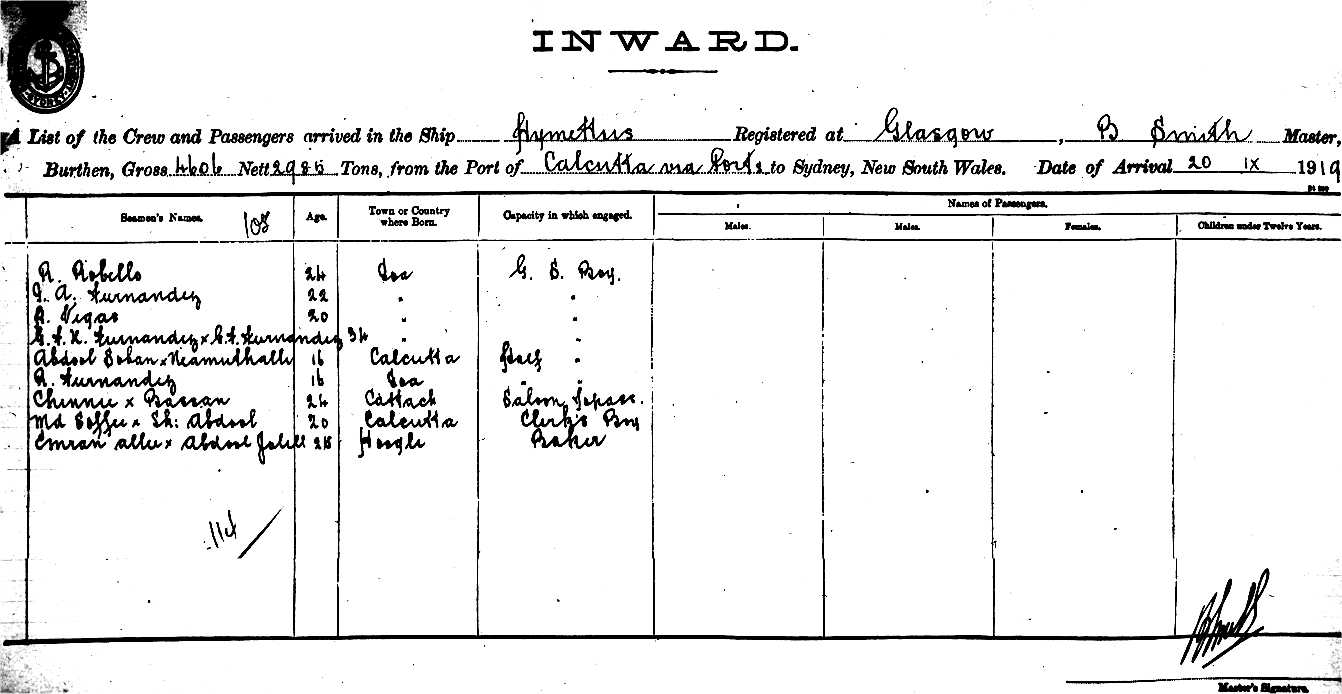 INWARD.
A List of the Crew and Passengers arrived in the Ship Hymettus Registered at Glasgow, B Smith Master,
Burthen, Gross 4606 Nett 2985 Tons, from the Port of Calcutta via Ports to Sydney, New South Wales. Date of Arrival 20 IX 1919
Seamen's Names. 108 Age. Town or Country where Born. Capacity in which engaged. Names of Passengers.
Males. Males. Females. Children under Twelve Years.
R. Robello 24 Goa G. S. Boy.
A. Furnandez 22 " "
A. Vigas 20 " "
Furnandez x Furnandez 34 " "
Abdool Sohan x Niamuthalli 16 Calcutta "
R. Furnandez 16 Goa " "
Chinnie x Bassan 24 Cattack Saloon Topass.
Md Soffee x Sk: Abdool 20 Calcutta Clerk's Boy
Emran allee x Abdool Jalill Hoogle Baker
114
Master's Signature.